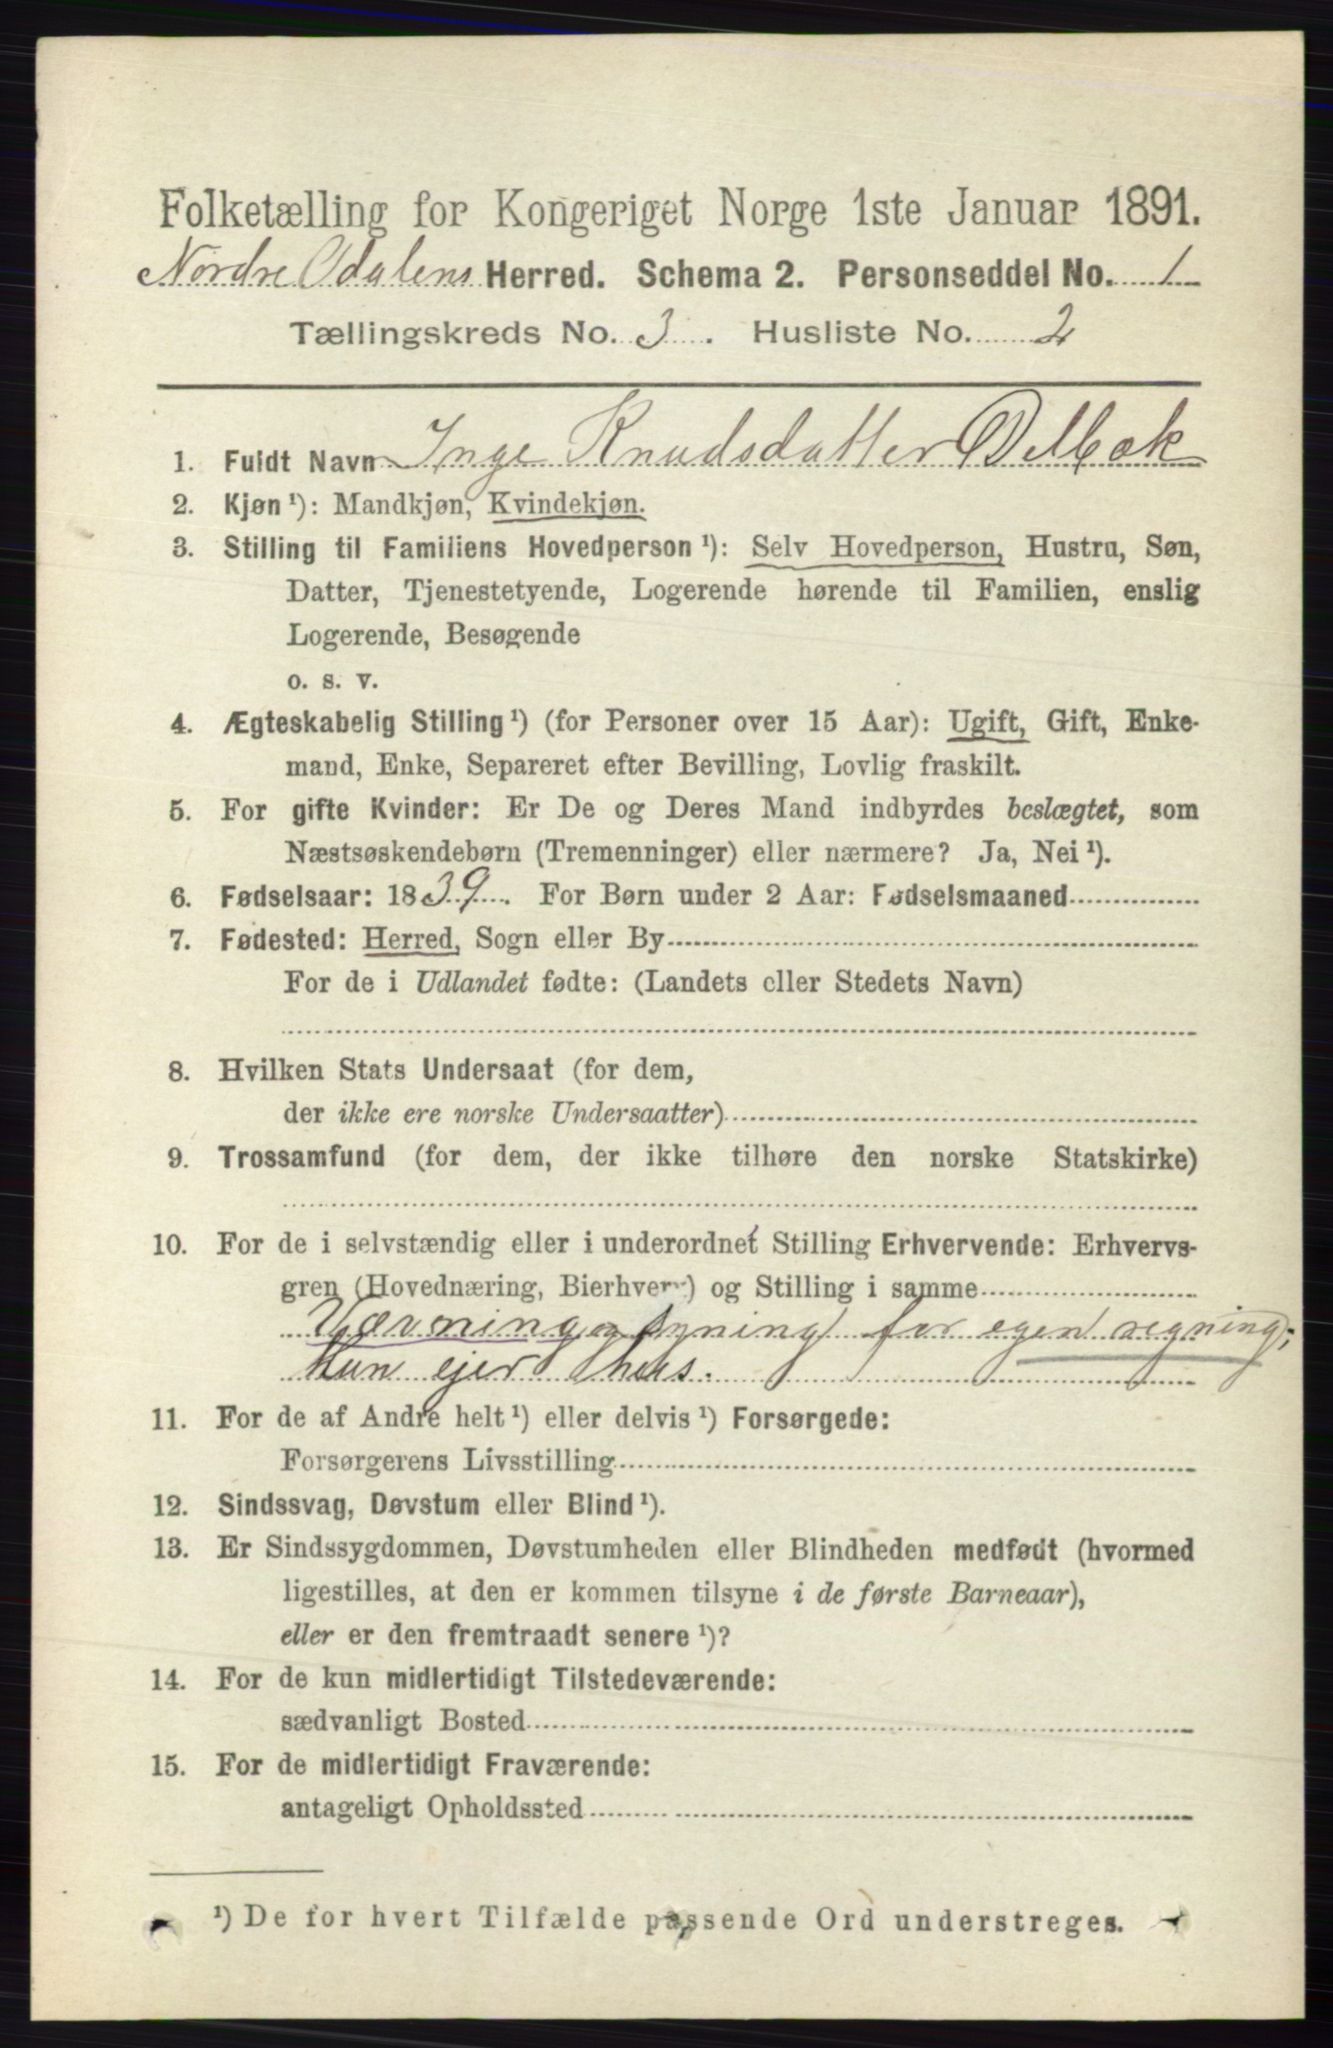 Folketælling for Kongeriget Norge 1ste Januar 1891.
Nordre Odalens Herred. Schema 2. Personseddel No. 1
Tællingskreds No. 3. Husliste No. 2
1. Fuldt Navn Inge Knudsdatter Delbæk
2. Kjøn ¹): Mandkjøn, Kvindekjøn.
3. Stilling til Familiens Hovedperson ¹): Selv Hovedperson, Hustru, Søn,
Datter, Tjenestetyende, Logerende hørende til Familien, enslig
Logerende, Besøgende
o. s. v.
4. Ægteskabelig Stilling ¹) (for Personer over 15 Aar): Ugift, Gift, Enke-
mand, Enke, Separeret efter Bevilling, Lovlig fraskilt.
5. For gifte Kvinder: Er De og Deres Mand indbyrdes beslægtet, som
Næstsøskendebørn (Tremenninger) eller nærmere? Ja, Nei ¹).
6. Fødselsaar: 1839. For Børn under 2 Aar: Fødselsmaaned
7. Fødested: Herred, Sogn eller By
For de i Udlandet fødte: (Landets eller Stedets Navn)
8. Hvilken Stats Undersaat (for dem,
der ikke ere norske Undersaatter)
9. Trossamfund (for dem, der ikke tilhøre den norske Statskirke)
10. For de i selvstændig eller i underordnet Stilling Erhvervende: Erhvervs-
gren (Hovednæring, Bierhverv) og Stilling i samme
Vævning og Syning for egen regning;
hun ejer hus.
11. For de af Andre helt ¹) eller delvis ¹) Forsørgede:
Forsørgerens Livsstilling
12. Sindssvag, Døvstum eller Blind ¹).
13. Er Sindssygdommen, Døvstumheden eller Blindheden medfødt (hvormed
ligestilles, at den er kommen tilsyne i de første Barneaar),
eller er den fremtraadt senere ¹)?
14. For de kun midlertidigt Tilstedeværende:
sædvanligt Bosted
15. For de midlertidigt Fraværende:
antageligt Opholdssted
¹) De for hvert Tilfælde passende Ord understreges.